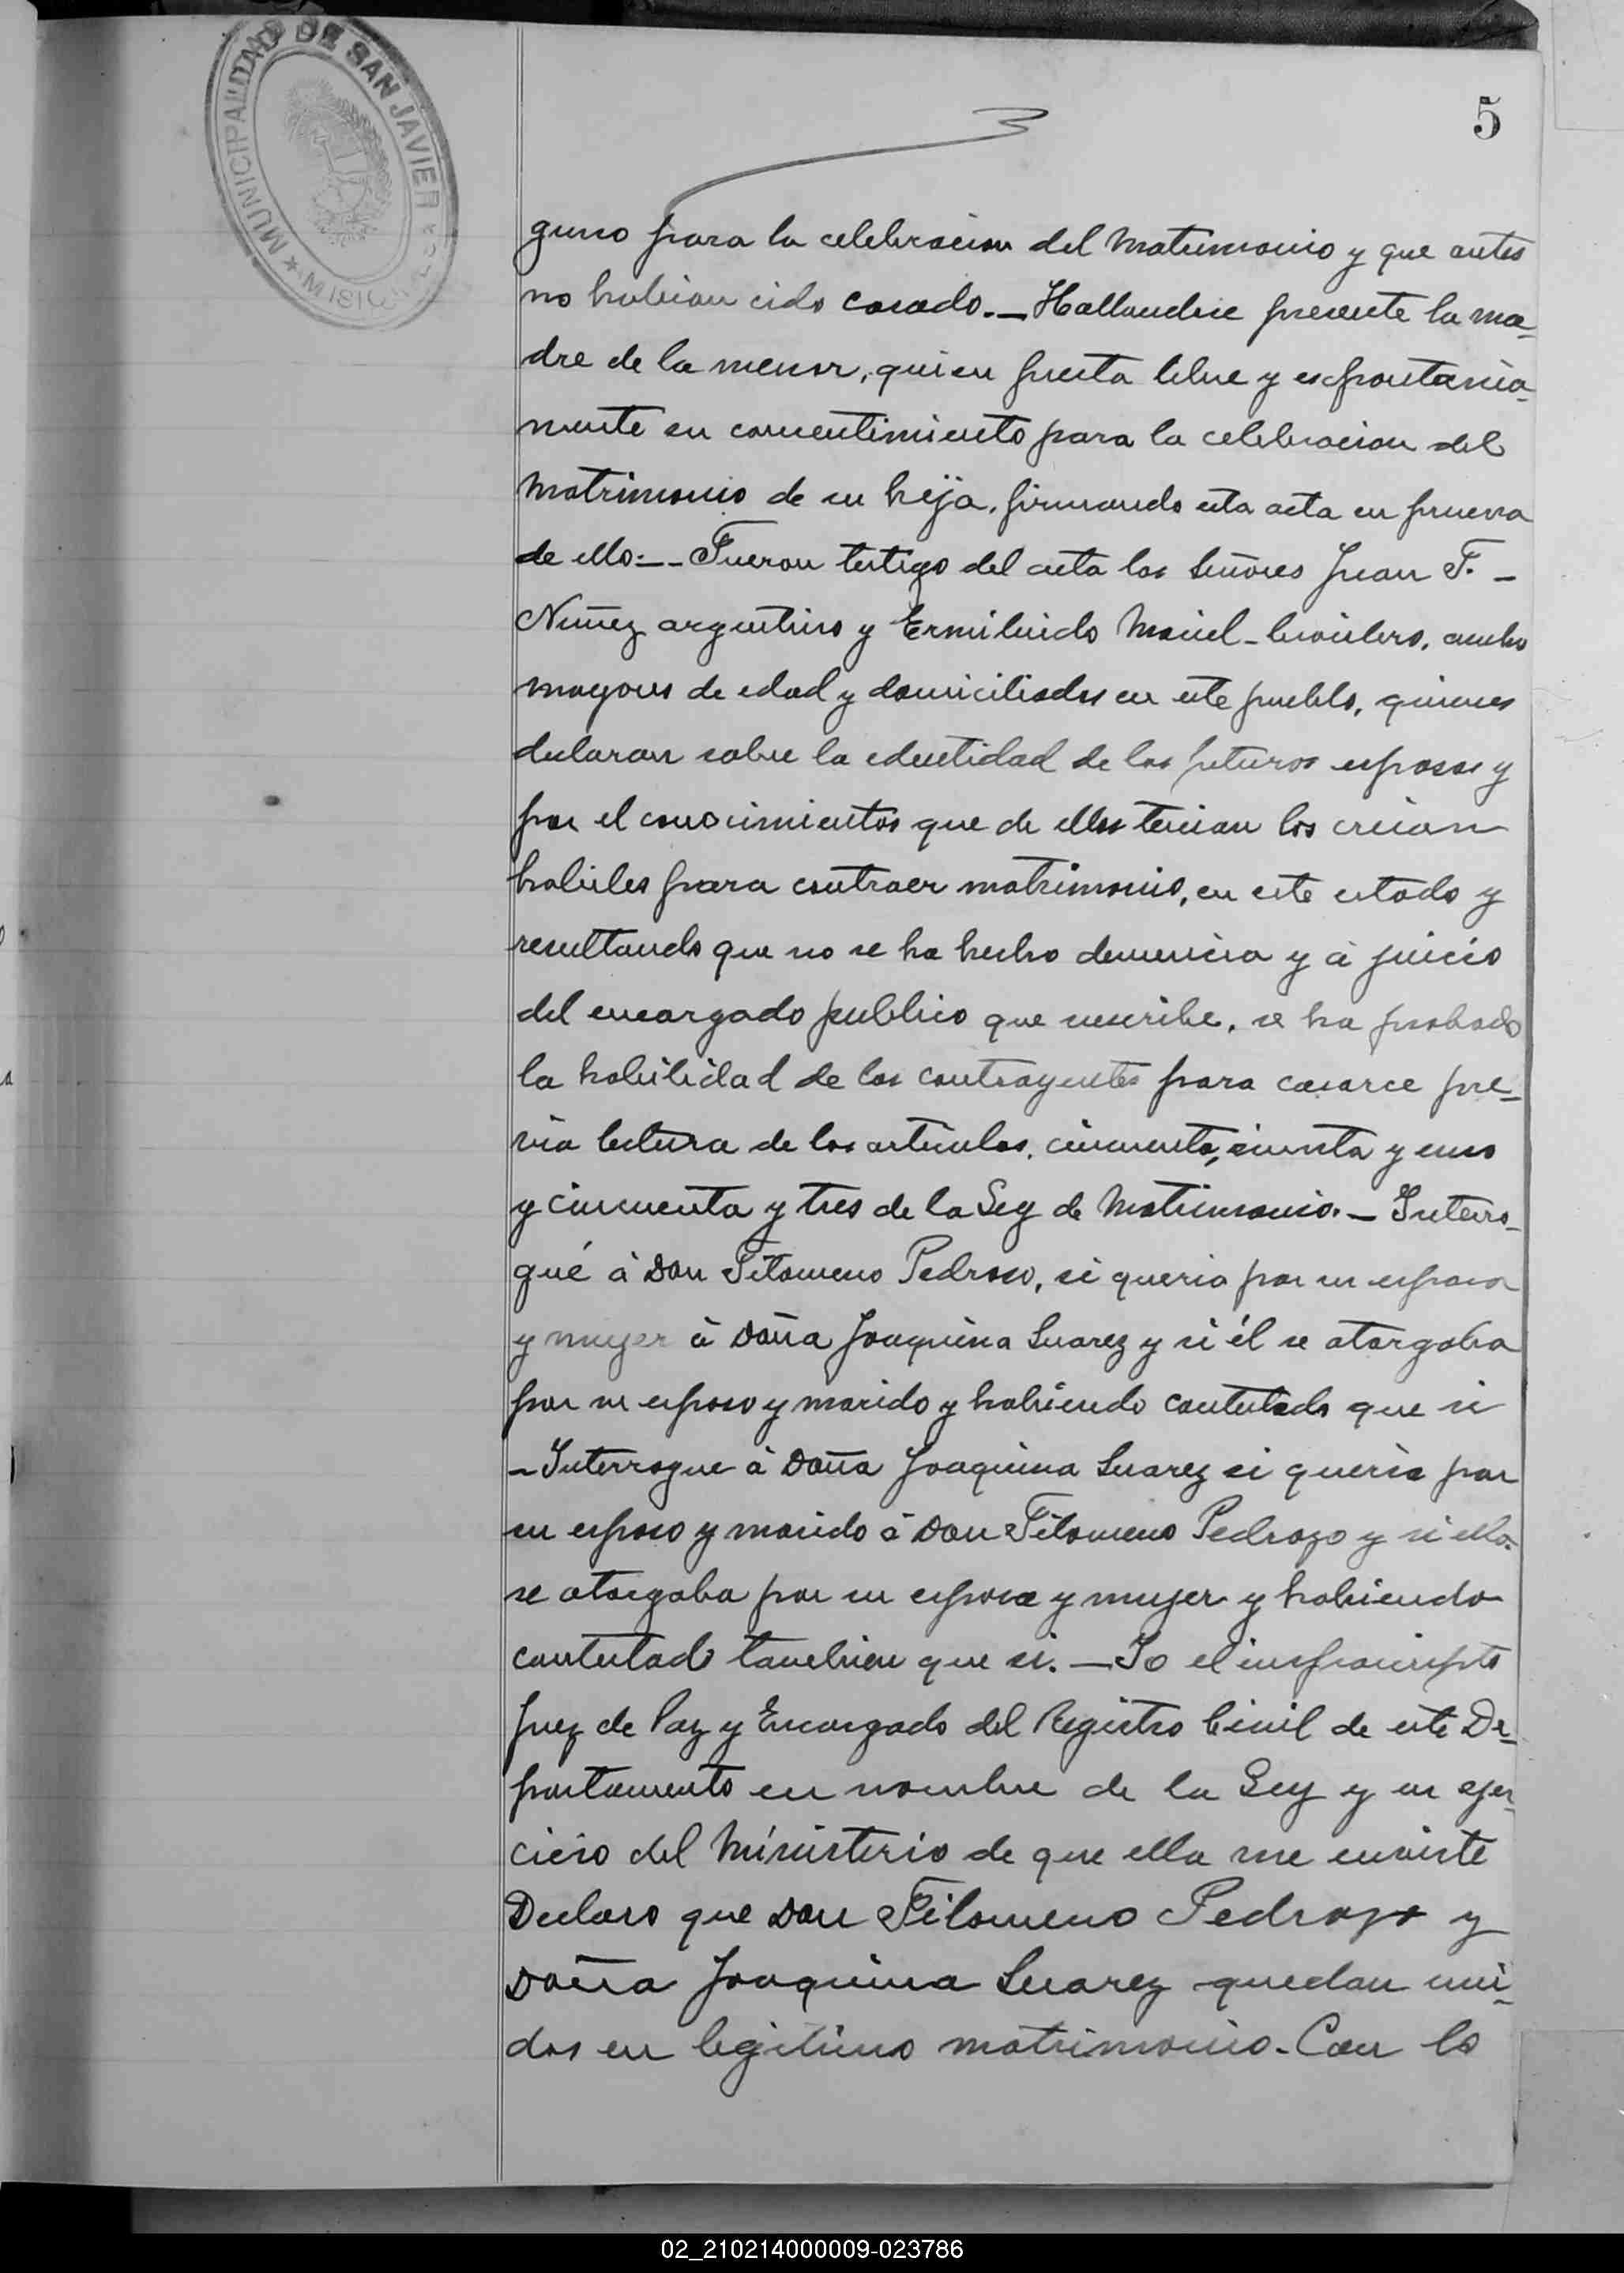 MUNICIPALIDAD DE SAN JAVIER
★ MISIONES
5
guno para la celebracion del Matrimonio y que antes
no habian cido casado._ Hallandose presente la ma-
dre de la menor, quien presta libre y espontania-
mente su consentimiento para la celebracion del
Matrimonio de su hija, firmando esta acta en prueva
de ello._ Fueron testigo del acta los Señores Juan F. _
Nuñez argentino y Ermilindo Maciel _ brasilero, ambo
mayores de edad y domiciliados en este pueblo, quienes
declaran sobre la edentidad de los futuros esposos y
por el conocimientos que de ellos tenian los creian
habiles para contraer matrimonio, en este estado y
resultando que no se ha hecho denuncia y à juicio
del encargado publico que suscribe, se ha probado
la habilidad de los contrayentes para casarce pre-
via lectura de los articulos, cincuenta, ciunta y uno
y cincuenta y tres de la Ley de Matrimonio._ Interro-
gué à Don Filomeno Pedroso, si queria por su esposa
y muger à Doña Joaquina Suarez y si él se otorgaba
por su esposo y marido y habiendo contestado que si
_ Interrogue à Doña Joaquina Suarez si queria por
su esposo y marido à Don Filomeno Pedrozo y si ella
se otorgaba por su esposa y mujer y habiendo
contestado tambien que si. _ Yo el
Juez de Paz y Encargado del Registro Civil de este De-
partamento en nombre de la Ley y en ejer-
cicio del Ministerio de que ella me enviste
Declaro que Don Filomeno Pedrozo y
Doña Joaquina Suarez quedan uni-
dos en legitimo matrimonio. Con lo
02_210214000009-023786